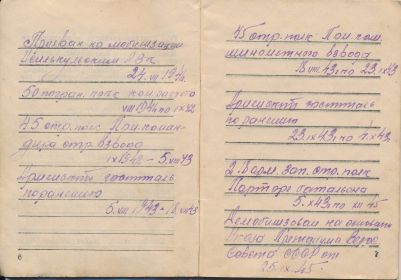 Призван по мобилизации
24.VII 1941г.
50 погран. полк
VIII 1941 по IX 42
45 стр. полк Пом. коман-
дира стр. взвода
IX 1942 - 5.VIII 43
госпиталь
по ранению
5.VIII 1943 - 18.VIII 43
6
45 стр. полк Пом. ком.
минометного взвода
18.VIII.43 по 23.IX 43
госпиталь
по ранению
23.IX 43 по X 43
2 зап. стр. полк
Парторг батальона
5.X 43 по XII 45
Демобилизован на основан.
Указа Президиума Верхов.
Совета СССР от
25.IX.45
7